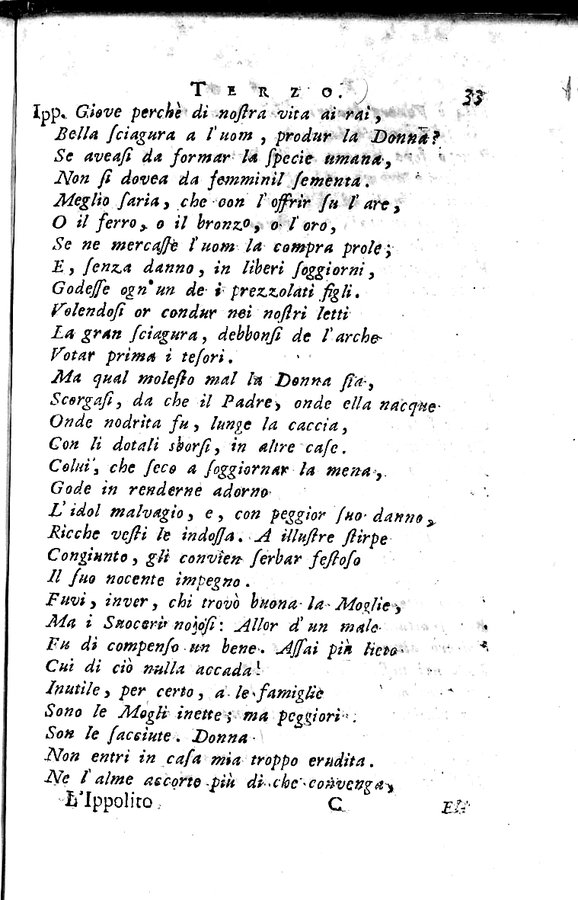 TERZO. 33
Ipp. Giove perchè di noſtra vita ai rai,
Bella ſciagura a l'uom, produr la Donna?
Se aveaſi da formar la ſpecie umana,
Non ſi dovea da femminil ſementa.
Meglio ſaria, che con l'offrir ſu l'are,
O il ferro, o il bronzo, o l'oro,
Se ne mercaſſe l'uom la compra prole;
E, ſenza danno, in liberi ſoggiorni,
Godeſſe ogn'un de i prezzolati figli.
Volendoſi or condur nei noſtri letti
La gran ſciagura, debbonſi de l'arche
Votar prima i teſori.
Ma qual moleſto mal la Donna ſia,
Scorgaſi, da che il Padre, onde ella nacque
Onde nodrita fu, lunge la caccia,
Con li dotali sborſi, in altre caſe.
Colui, che ſeco a ſoggiornar la mena,
Gode in renderne adorno
L'idol malvagio, e, con peggior ſuo danno,
Ricche veſti le indoſſa. A illuſtre ſtirpe
Congiunto, gli convien ſerbar feſtoſo
Il ſuo nocente impegno.
Fuvi, inver, chi trovò buona la Moglie,
Ma i Suoceri nojoſi: Allor d'un male
Fu di compenſo un bene. Aſſai più lieto
Cui di ciò nulla accada!
Inutile, per certo, a le famiglie
Sono le Mogli inette; ma peggiori
Son le ſacciute. Donna
Non entri in caſa mia troppo erudita.
Ne l'alme accorte più di che convenga,
L'Ippolito C